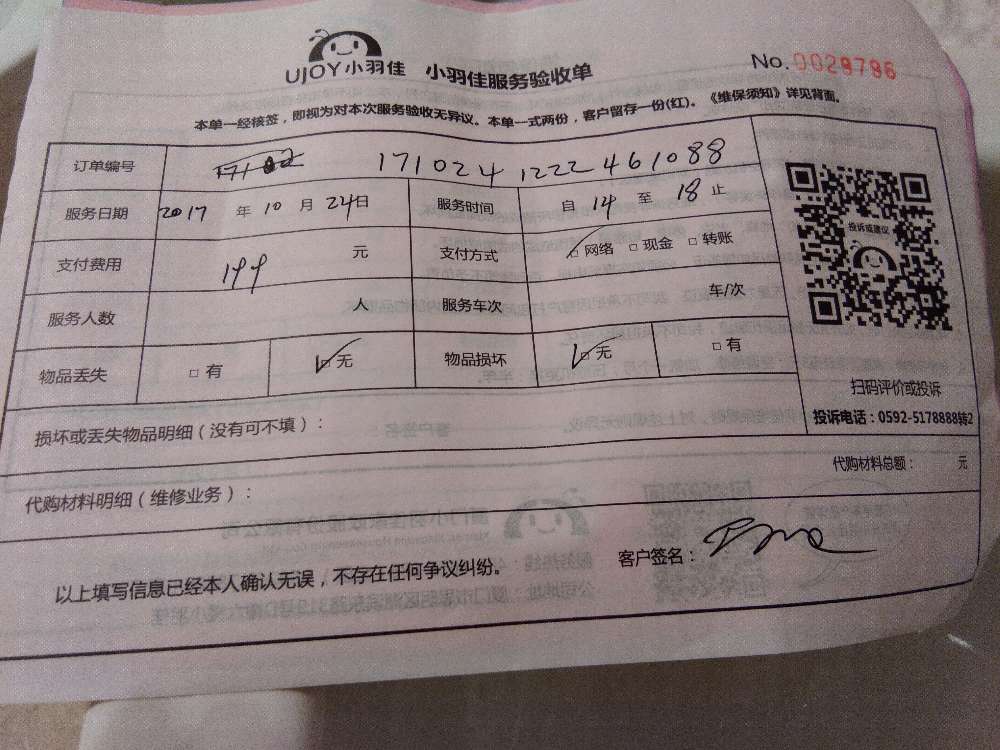 UJOY小羽佳 小羽佳服务验收单 No.0029796
本单一经接签，即视为对本次服务验收无异议。本单一式两份，客户留存一份(红)。《维保须知》详见背面。
订单编号 171024 1222 461088
服务日期 2017 年 10 月 24日 服务时间 自 14 至 18 止
支付费用 元 支付方式 □网络 □现金 □转账
服务人数 人 服务车次 车/次
物品丢失 □有 ☑无 物品损坏 ☑无 □有
投诉或建议
扫码评价或投诉
投诉电话：0592-5178888转2
损坏或丢失物品明细（没有可不填）：
代购材料总额： 元
代购材料明细（维修业务）：
以上填写信息已经本人确认无误，不存在任何争议纠纷。 客户签名：